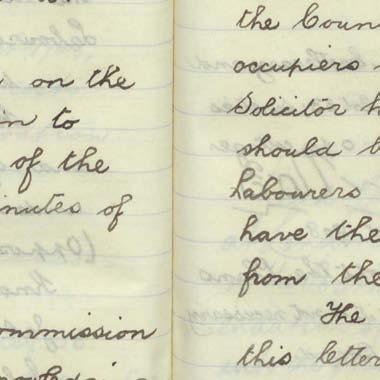 on the
in to
of the
inutes of
ommission
the Coun
occupiers
Solicitor h
should b
labourers
have the
from the
The
this letter